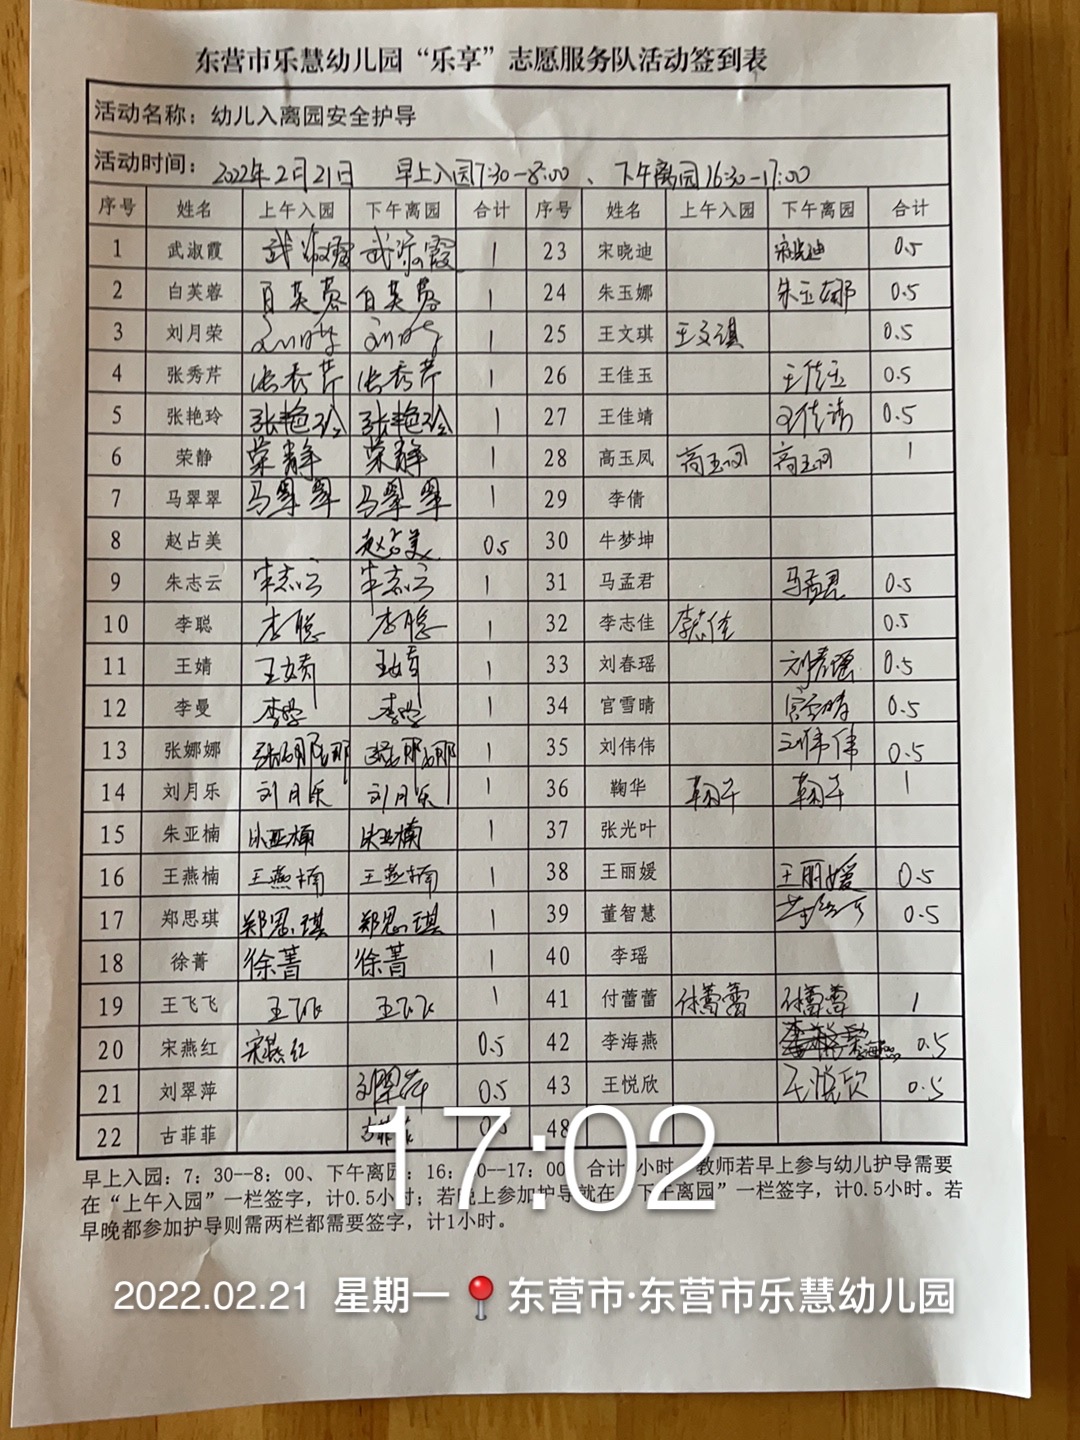 东营市乐慧幼儿园“乐享”志愿服务队活动签到表
活动名称：幼儿入离园安全护导
活动时间：2022年2月21日 早上入园7:30-8:00、下午离园16:30-17:00
序号 姓名 上午入园 下午离园 合计 序号 姓名 上午入园 下午离园 合计
1 武淑霞 武淑霞 武淑霞 1 23 宋晓迪 宋晓迪 0.5
2 白芙蓉 白芙蓉 白芙蓉 1 24 朱玉娜 朱玉娜 0.5
3 刘月荣 刘月荣 刘月荣 1 25 王文琪 王文琪 0.5
4 张秀芹 张秀芹 张秀芹 1 26 王佳玉 王佳玉 0.5
5 张艳玲 张艳玲 张艳玲 1 27 王佳靖 王佳靖 0.5
6 荣静 荣静 荣静 1 28 高玉凤 高玉凤 高玉凤 1
7 马翠翠 马翠翠 马翠翠 1 29 李倩
8 赵占美 赵占美 0.5 30 牛梦坤
9 朱志云 朱志云 朱志云 1 31 马孟君 马孟君 0.5
10 李聪 李聪 李聪 1 32 李志佳 李志佳 0.5
11 王婧 王婧 王婧 1 33 刘春瑶 刘春瑶 0.5
12 李曼 李曼 李曼 1 34 官雪晴 官雪晴 0.5
13 张娜娜 张娜娜 张娜娜 1 35 刘伟伟 刘伟伟 0.5
14 刘月乐 刘月乐 刘月乐 1 36 鞠华 鞠华 鞠华 1
15 朱亚楠 朱亚楠 朱亚楠 1 37 张光叶
16 王燕楠 王燕楠 王燕楠 1 38 王丽媛 王丽媛 0.5
17 郑思琪 郑思琪 郑思琪 1 39 董智慧 0.5
18 徐菁 徐菁 徐菁 1 40 李瑶
19 王飞飞 王飞飞 王飞飞 1 41 付蕾蕾 付蕾蕾 付蕾蕾 1
20 宋燕红 宋燕红 0.5 42 李海燕 0.5
21 刘翠萍 刘翠萍 0.5 43 王悦欣 王悦欣 0.5
22 古菲菲 古菲菲 0.5 48
早上入园：7：30--8：00、下午离园：16： 0--17：00 合计 小时 教师若早上参与幼儿护导需要
在“上午入园”一栏签字，计0.5小时；若晚上参加护导就在“下午离园”一栏签字，计0.5小时。若
早晚都参加护导则需两栏都需要签字，计1小时。
17:02
2022.02.21 星期一 东营市·东营市乐慧幼儿园